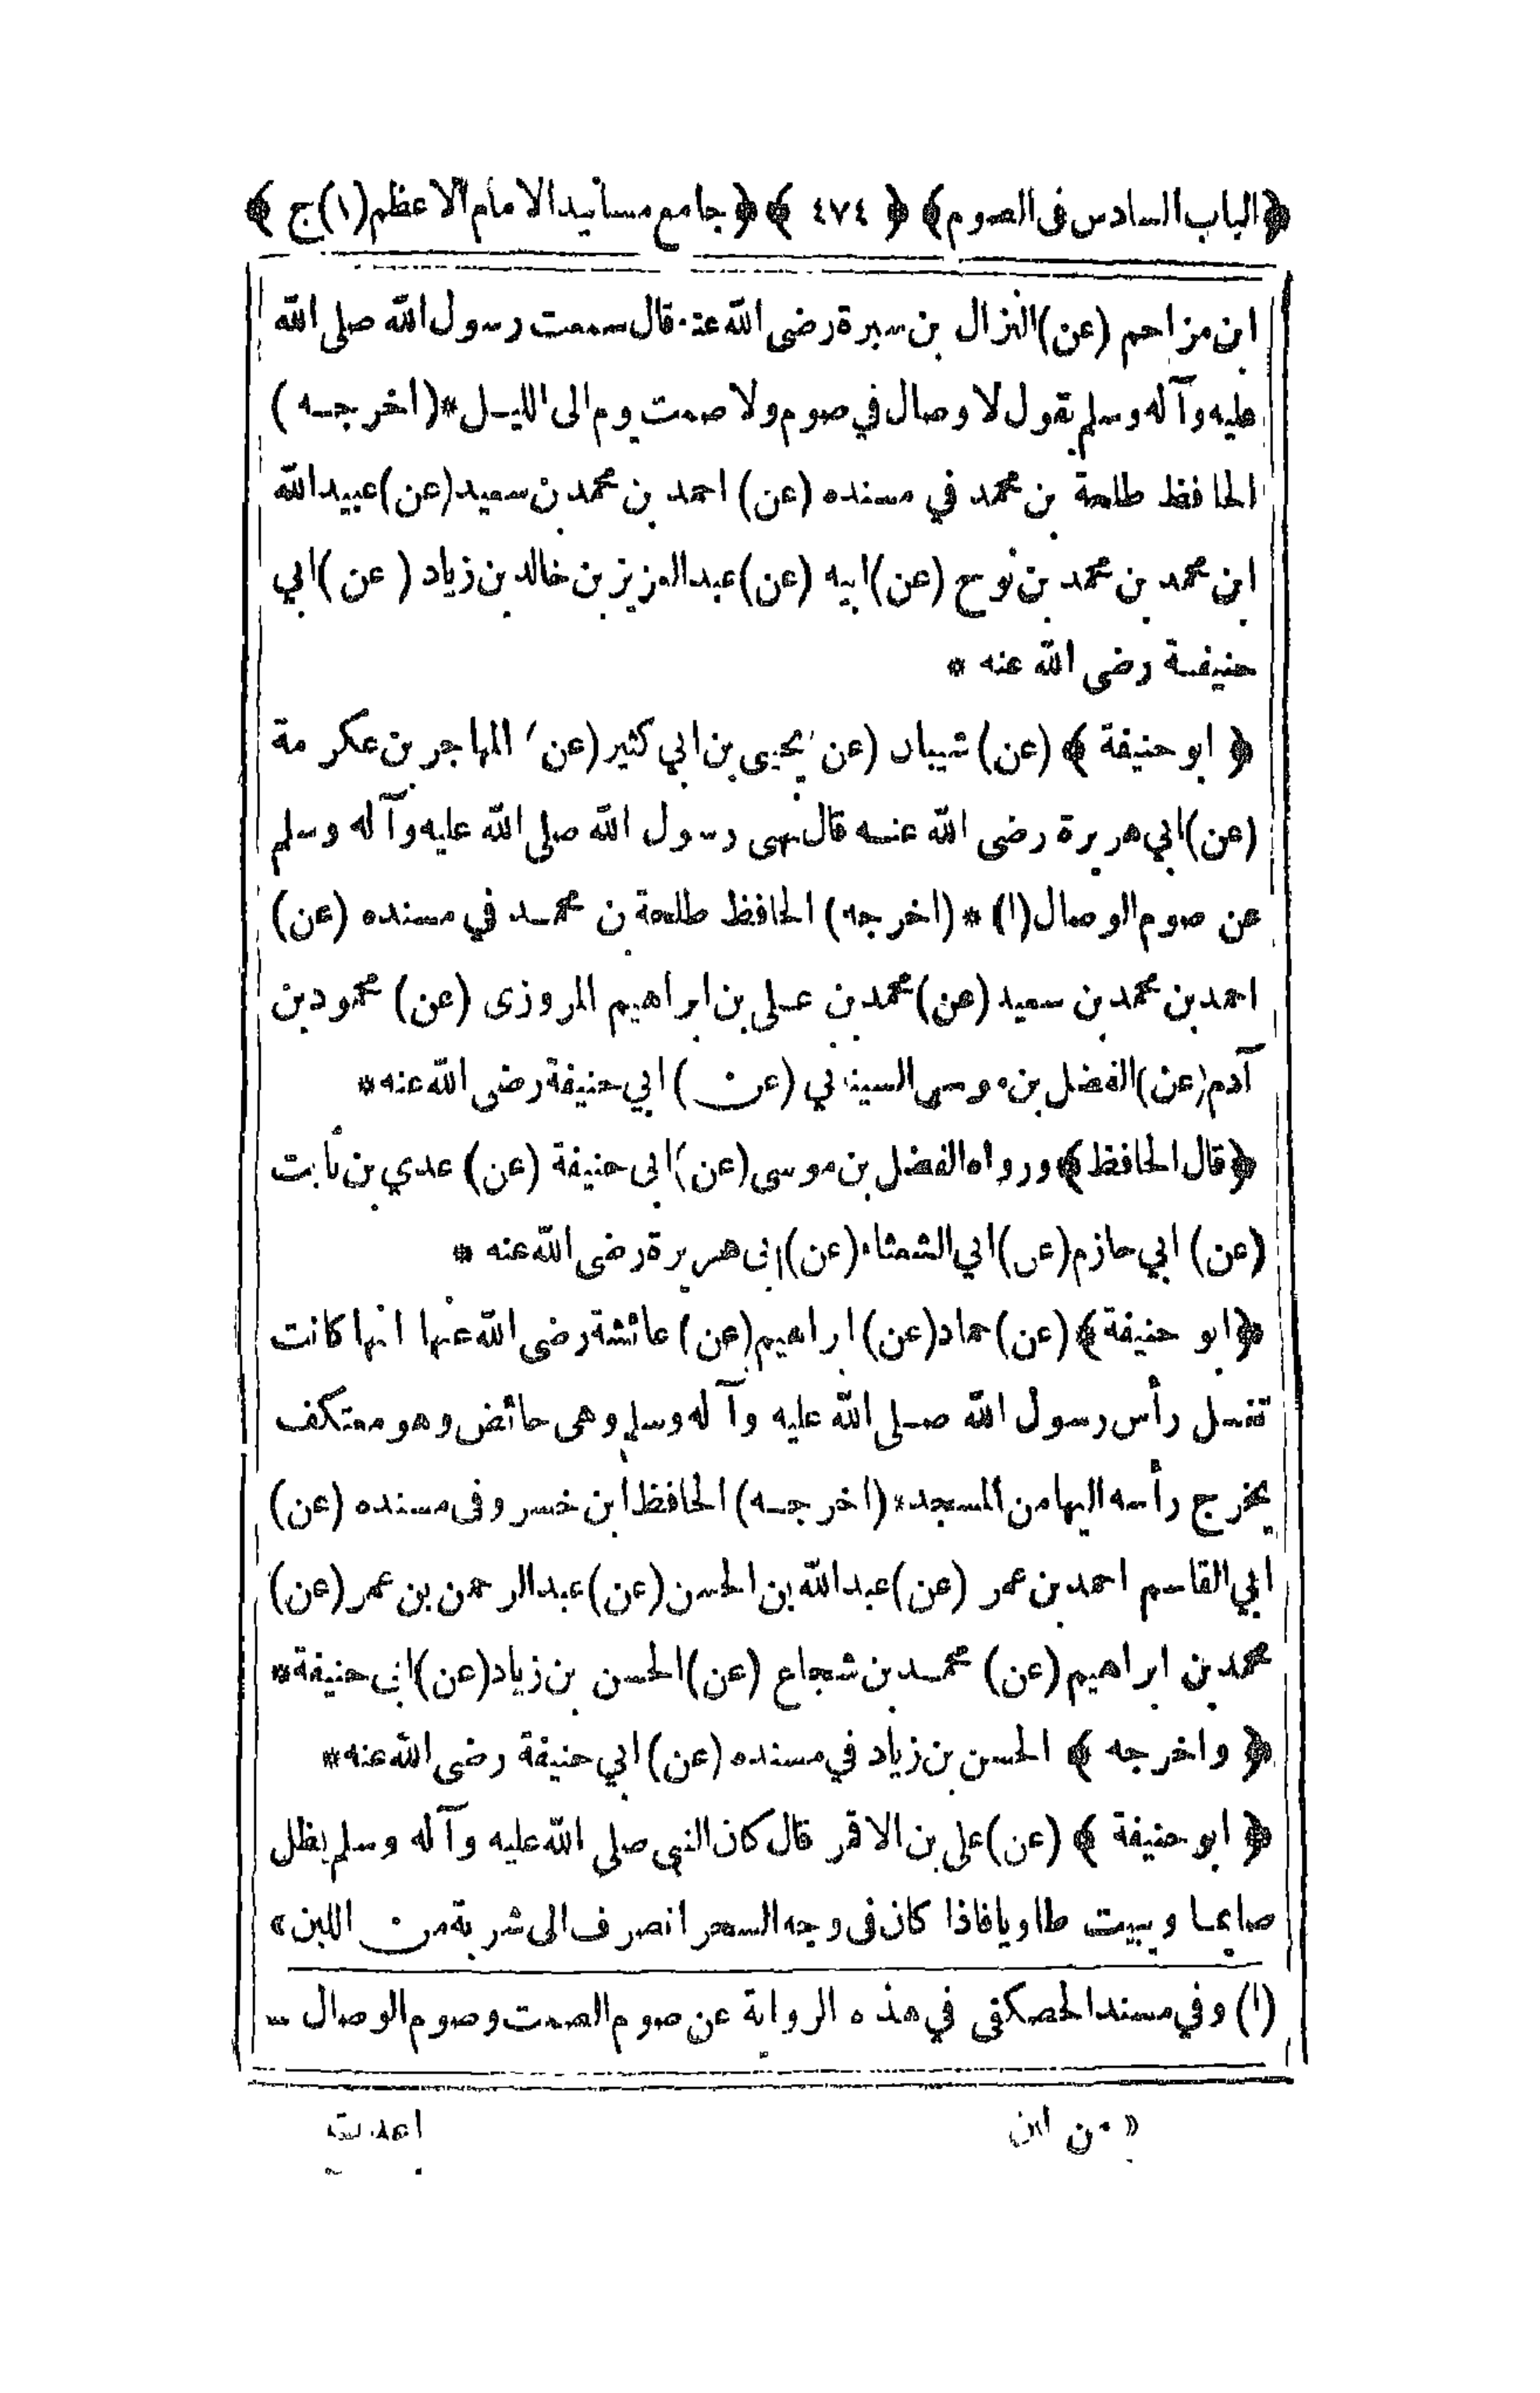 ﴿الباب السادس فى الصوم﴾ ﴿ ٤٧٤ ﴾ ﴿جامع مسانيد الامام الاعظم(١)ج ﴾
ابن مزاحم (عن)النزال بن سبرة رضى الله عنه قال سمعت رسول الله صلى الله
عليه وآله وسلم يقول لا وصال في صوم ولا صمت يوم الى الليل*(اخرجه)
الحافظ طلحة بن محمد في مسنده (عن) احمد بن محمد بن سعيد(عن)عبيدالله
ابن محمد بن محمد بن نوح (عن)ابيه (عن)عبدالعزيز بن خالد بن زياد (عن)ابي
حنيفة رضى الله عنه *
﴿ ابو حنيفة ﴾ (عن) شيبان (عن) يحيى بن ابي كثير(عن) المهاجر بن عكرمة
(عن)ابي هريرة رضى الله عنه قال نهى رسول الله صلى الله عليه وآله وسلم
عن صوم الوصال(١) *(اخرجه) الحافظ طلحة بن محمد في مسنده (عن)
احمد بن محمد بن سعيد (عن)محمد بن على بن ابراهيم المروزى (عن) محمود بن
آدم(عن)الفضل بن موسى السيناني (عن) ابي حنيفة رضى الله عنه*
﴿قال الحافظ﴾ورواه الفضل بن موسى(عن)ابى حنيفة (عن) عدي بن ثابت
(عن) ابي حازم(عن)ابي الشعثاء(عن)ابى هريرة رضى الله عنه *
﴿ابو حنيفة﴾(عن)حماد(عن)ابراهيم(عن)عائشة رضى الله عنها انها كانت
تغسل رأس رسول الله صلى الله عليه وآله وسلم وهى حائض وهو معتكف
يخرج رأسه اليها من المسجد*(اخرجه) الحافظ ابن خسرو فى مسنده (عن)
ابي القاسم احمد بن عمر (عن)عبدالله بن الحسن(عن)عبدالرحمن بن عمر(عن)
محمد بن ابراهيم(عن) محمد بن شجاع (عن)الحسن بن زياد(عن)ابى حنيفة*
﴿ واخرجه ﴾ الحسن بن زياد في مسنده (عن)ابي حنيفة رضى الله عنه*
﴿ ابو حنيفة ﴾ (عن)على بن الاقمر قال كان النبى صلى الله عليه وآله وسلم يظل
صايما ويبيت طاويا فاذا كان فى وجه السحر انصرف الى شربة من اللبن»
(١) وفي مسند الحصكفى في هذه الرواية عن صوم الصمت وصوم الوصال -
« من ابن